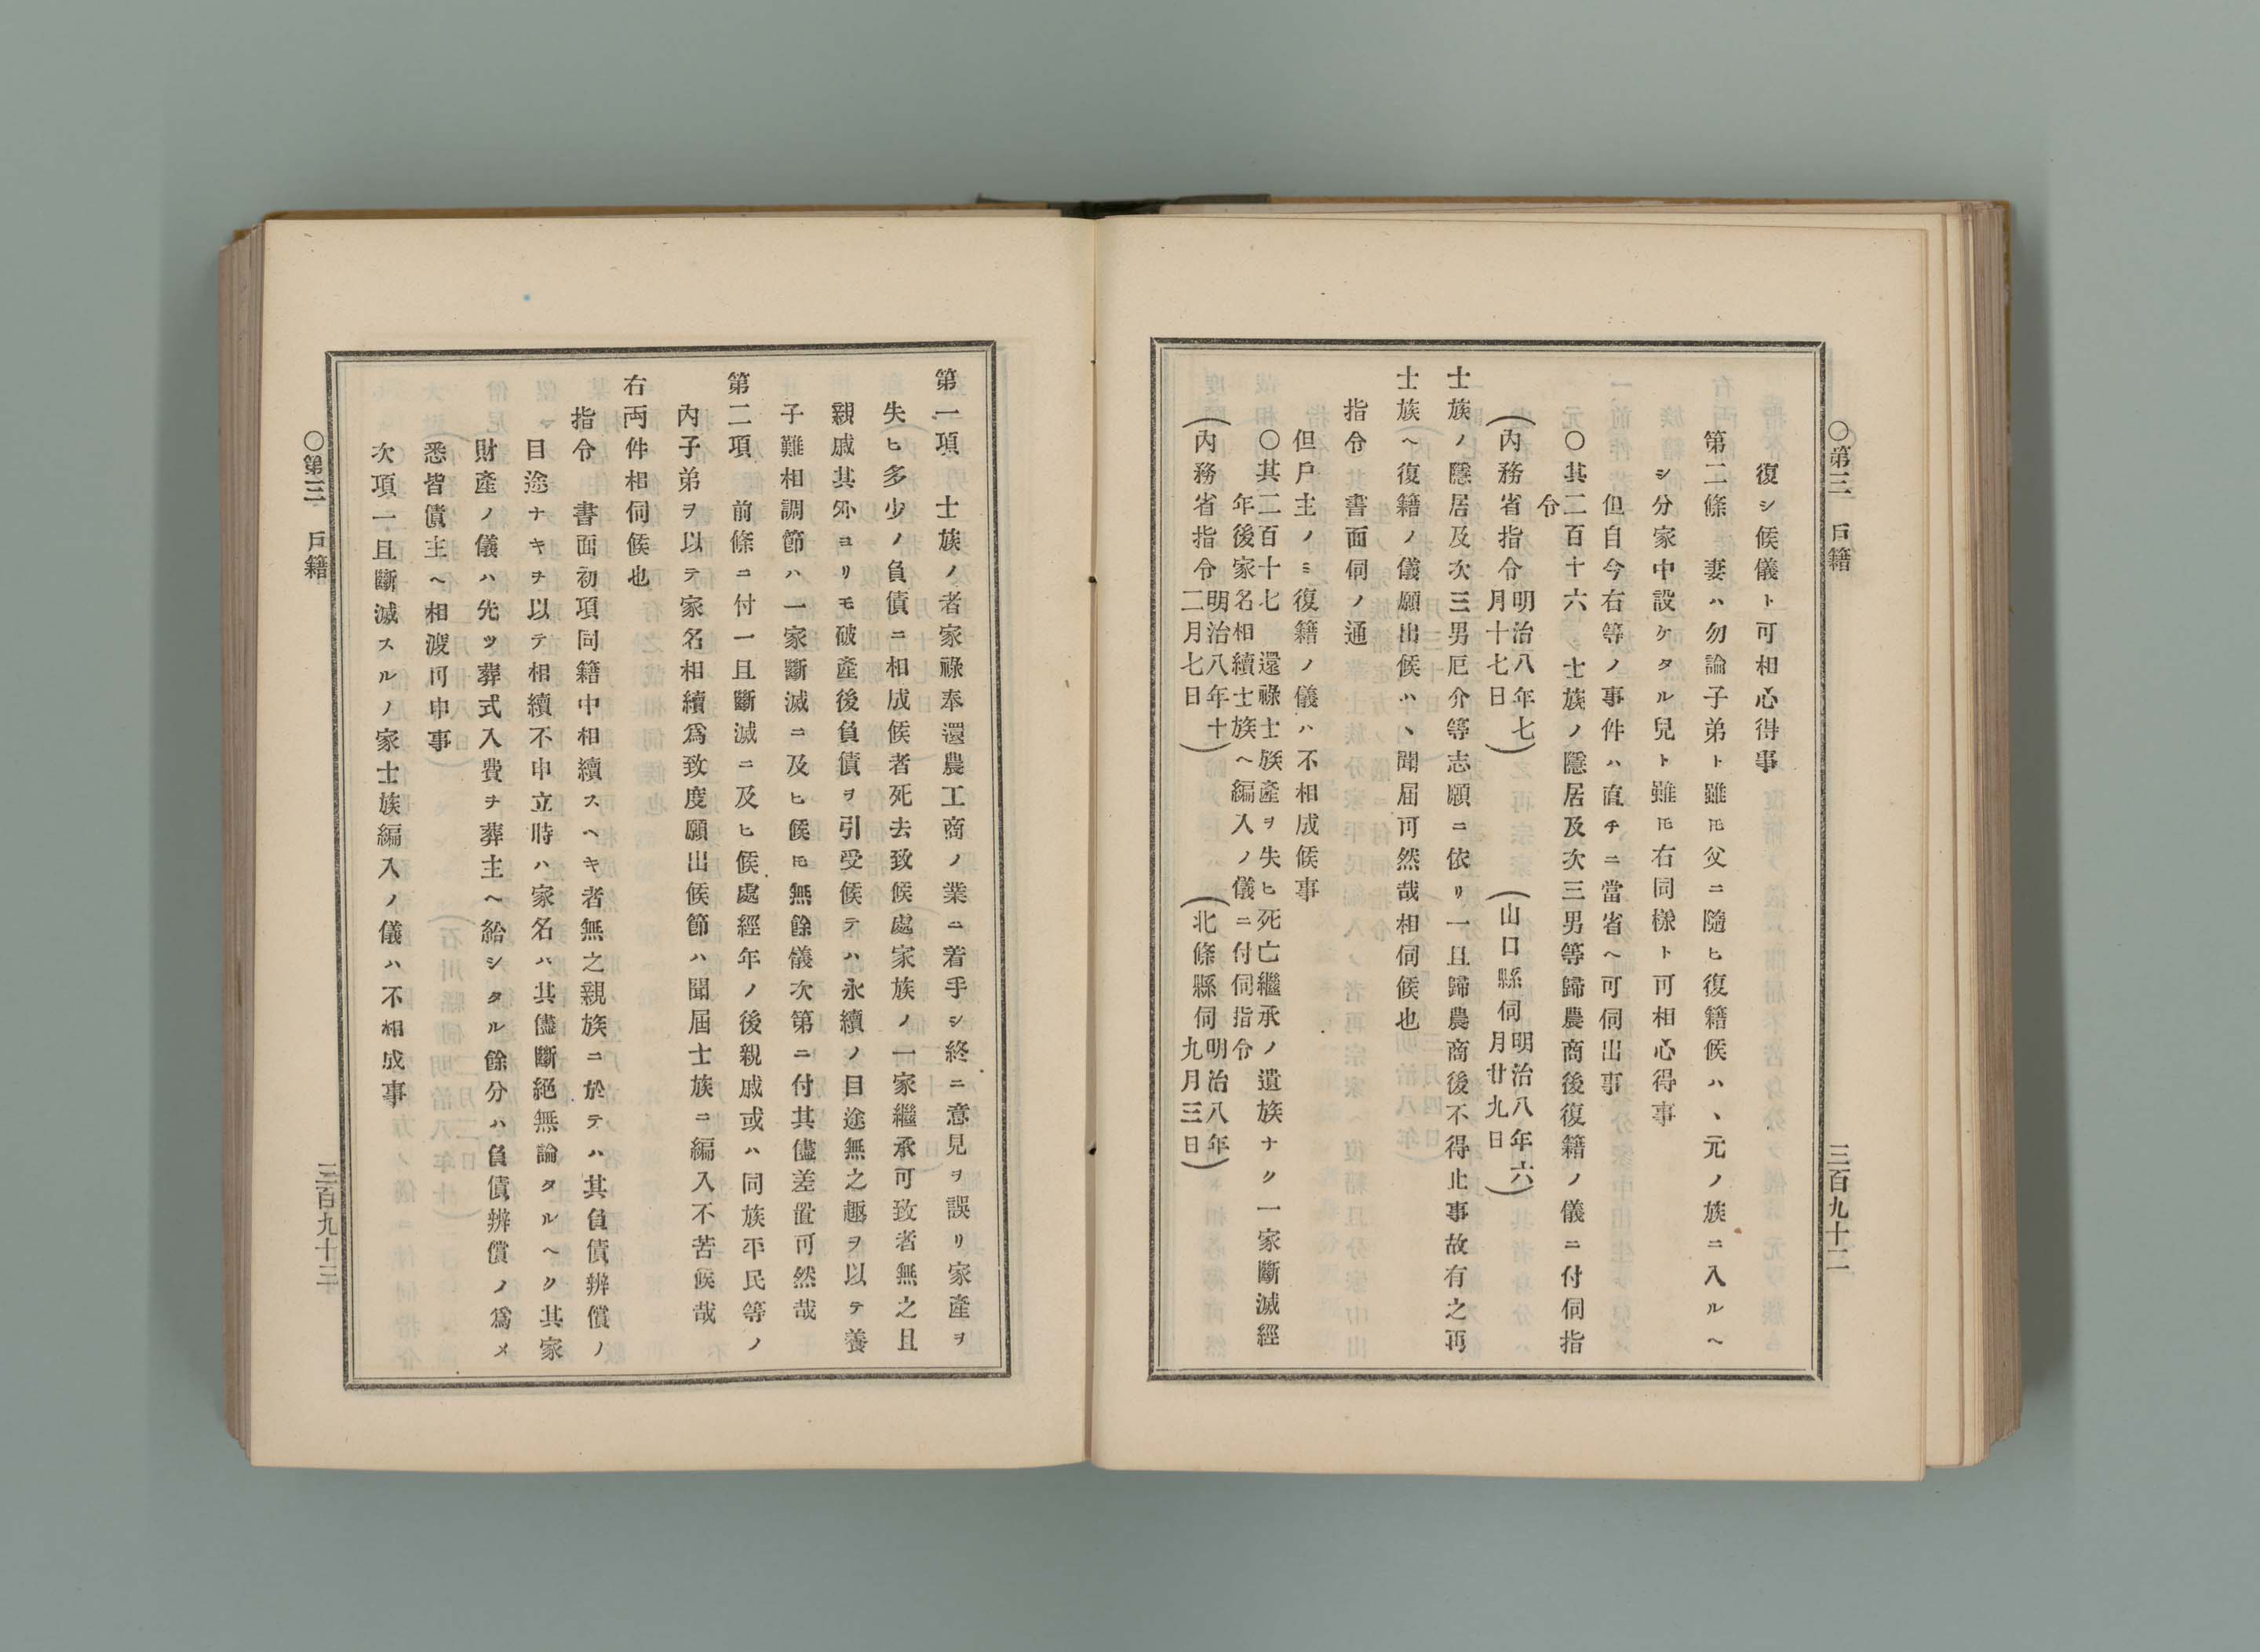 ○第三　戶籍
三百九十二
復シ候儀ト可相心得事
第二條　妻ハ勿論子弟ト雖𪜈父ニ隨ヒ復籍候ハヽ元ノ族ニ入ルヘ
シ分家中設ケタル兒ト雖𪜈右同樣ト可相心得事
但自今右等ノ事件ハ直チニ當省ヘ可伺出事
○其二百十六　士族ノ隱居及次三男等歸農商後復籍ノ儀ニ付伺指
令
(內務省指令明治八年七月十七日)　(山口縣伺明治八年六月廿九日)
士族ノ隱居及次三男厄介等志願ニ依リ一且歸農商後不得止事故有之再
士族ヘ復籍ノ儀願出候ハヽ聞屆可然哉相伺候也
指令　書面伺ノ通
但戶主ノミ復籍ノ儀ハ不相成候事
○其二百十七　還祿士族產ヲ失ヒ死亡繼承ノ遺族ナク一家斷滅經
年後家名相續士族ヘ編入ノ儀ニ付伺指令
(內務省指令明治八年十二月七日)　(北條縣伺明治八年九月三日)
第一項　士族ノ者家祿奉還農工商ノ業ニ着手シ終ニ意見ヲ誤リ家產ヲ
失ヒ多少ノ負債ニ相成候者死去致候處家族ノ一家繼承可致者無之且
親戚其外ヨリモ破產後負債ヲ引受候テハ永續ノ目途無之趣ヲ以テ養
子難相調節ハ一家斷滅ニ及ヒ候𪜈無餘儀次第ニ付其儘差置可然哉
第二項　前條ニ付一且斷滅ニ及ヒ候處經年ノ後親戚或ハ同族平民等ノ
內子弟ヲ以テ家名相續爲致度願出候節ハ聞屆士族ニ編入不苦候哉
右両件相伺候也
指令　書面初項同籍中相續スヘキ者無之親族ニ於テハ其負債辨償ノ
目途ナキヲ以テ相續不申立時ハ家名ハ其儘斷絕無論タルヘク其家
財產ノ儀ハ先ツ葬式入費ヲ葬主ヘ給シタル餘分ハ負債辨償ノ爲メ
悉皆債主ヘ相渡可申事
次項一且斷滅スルノ家士族編入ノ儀ハ不相成事
○第三　戶籍
三百九十三